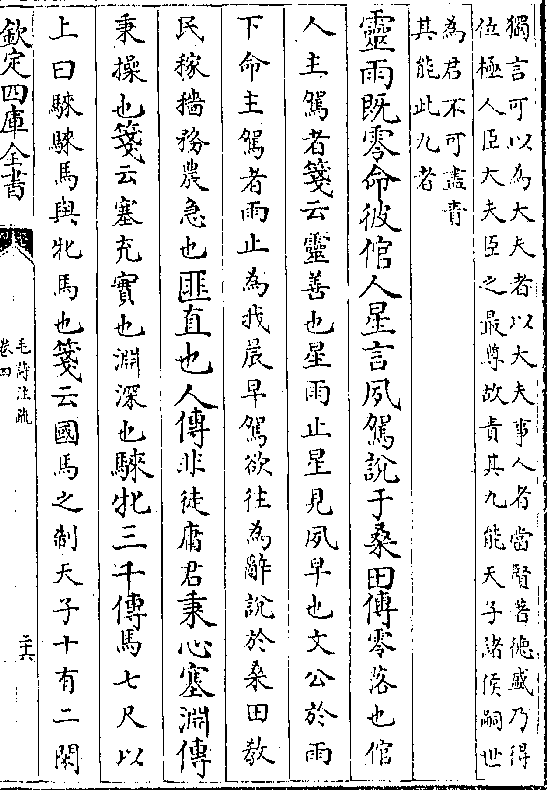 獨言可以為大夫者以大夫事人者當賢著德盛乃得
位極人臣大夫臣之最尊故責其九能天子諸侯嗣世
為君不可盡責
其能此九者
靈雨既零命彼倌人星言夙駕說于桑田傳零落也倌
人主駕者箋云靈善也星雨止星見夙早也文公於雨
下命主駕者雨止為我晨早駕欲往為辭說於桑田教
民稼穡務農急也匪直也人傳非徒庸君秉心塞淵傳
秉操也箋云塞充實也淵深也騋牝三千傳馬七尺以
上曰騋騋馬與牝馬也箋云國馬之制天子十有二閑
欽定四庫全書
毛詩注疏
卷四
二六